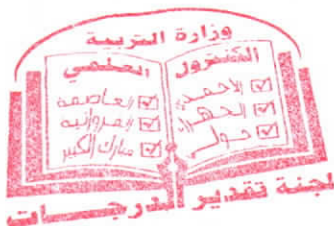 وزارة التربية
الكنترول العلمي
الأحمدي ☑ العاصمة ☑
الجهراء ☑ الفروانية ☑
حولي ☑ مبارك الكبير ☑
لجنة تقدير الدرجات